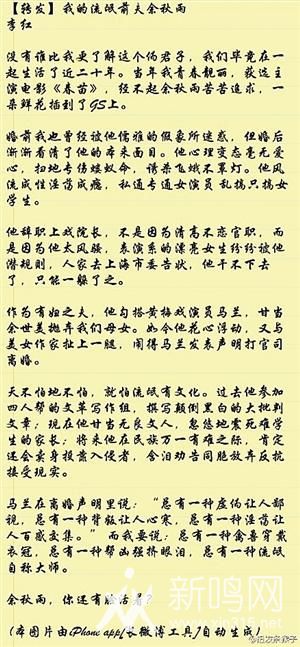 【转发】我的流氓前夫余秋雨
李红
没有谁比我更了解这个伪君子，我们毕竟在一
起生活了近二十年。当年我青春靓丽，获选主
演电影《春苗》，经不起余秋雨苦苦追求，一
朵鲜花插到了GS上。
婚前我也曾经被他儒雅的假象所迷惑，但婚后
渐渐看清了他的本来面目。他心理变态毫无爱
心，扫地专伤蝼蚁命，诱杀飞蛾不罩灯。他风
流成性淫荡成瘾，私通专通女演员，乱搞只搞女
学生。
他辞职上戏院长，不是因为清高不恋官职，而
是因为他太风骚，表演系的漂亮女生纷纷被他
潜规则，人家去上海市委告状，他干不下去
了，只能一躲了之。
作为有妇之夫，他勾搭黄梅戏演员马兰，甘当
余世美抛弃我们母女。如今他花心浮动，又与
美女作家扯上一腿，闹得马兰发表声明打官司
离婚。
天不怕地不怕，就怕流氓有文化。过去他参加
四人帮的文革写作组，撰写颠倒黑白的大批判
文章；现在他甘当无良文人，忽悠地震死难学
生的家长；将来他在民族万一有难之际，肯定
还会卖身投靠入侵者，含泪劝告同胞放弃反抗
接受现实。
马兰在离婚声明里说：“总有一种虚伪让人鄙
视，总有一种背叛让人心寒，总有一种淫荡让
人百感交集。”而我要说：总有一种禽兽穿戴
衣冠，总有一种帮凶强挤眼泪，总有一种流氓
自称大师。
余秋雨，你还有脸活着？
(本图片由iPhone app/长微博工具/自动生成)
新鸣网